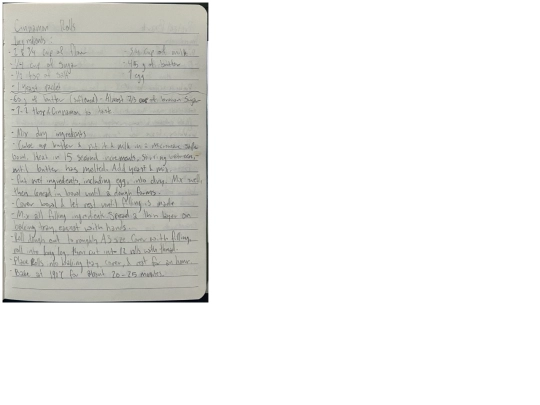 Cinnamon Rolls
Ingredients:
- 2 & 3/4 cup of flour - 3/4 cup of milk
- 1/4 cup of sugar - 45 g of butter
- 1/2 tsp of salt - 1 egg
- 1 yeast packet
- of butter (filling) - Almost of brown sugar
- Cinnamon to taste
- Mix dry ingredients
- Cube up butter & put it & milk in a microwave safe
bowl. Heat in 15 second increments, stirring
until butter has melted. Add yeast & mix
- Put wet ingredients, including egg, into dry. Mix well,
then knead in bowl until a dough forms.
- Cover bowl & let rest until filling is made
- Mix all filling ingredients. Spread a thin layer on
baking tray, with hands
- Roll dough out to roughly A3 size. Cover with filling,
roll into long log, then cut into 12 rolls with thread.
- Place Rolls into baking tray, cover, & rest for an hour
- Bake at for about 20-25 minutes